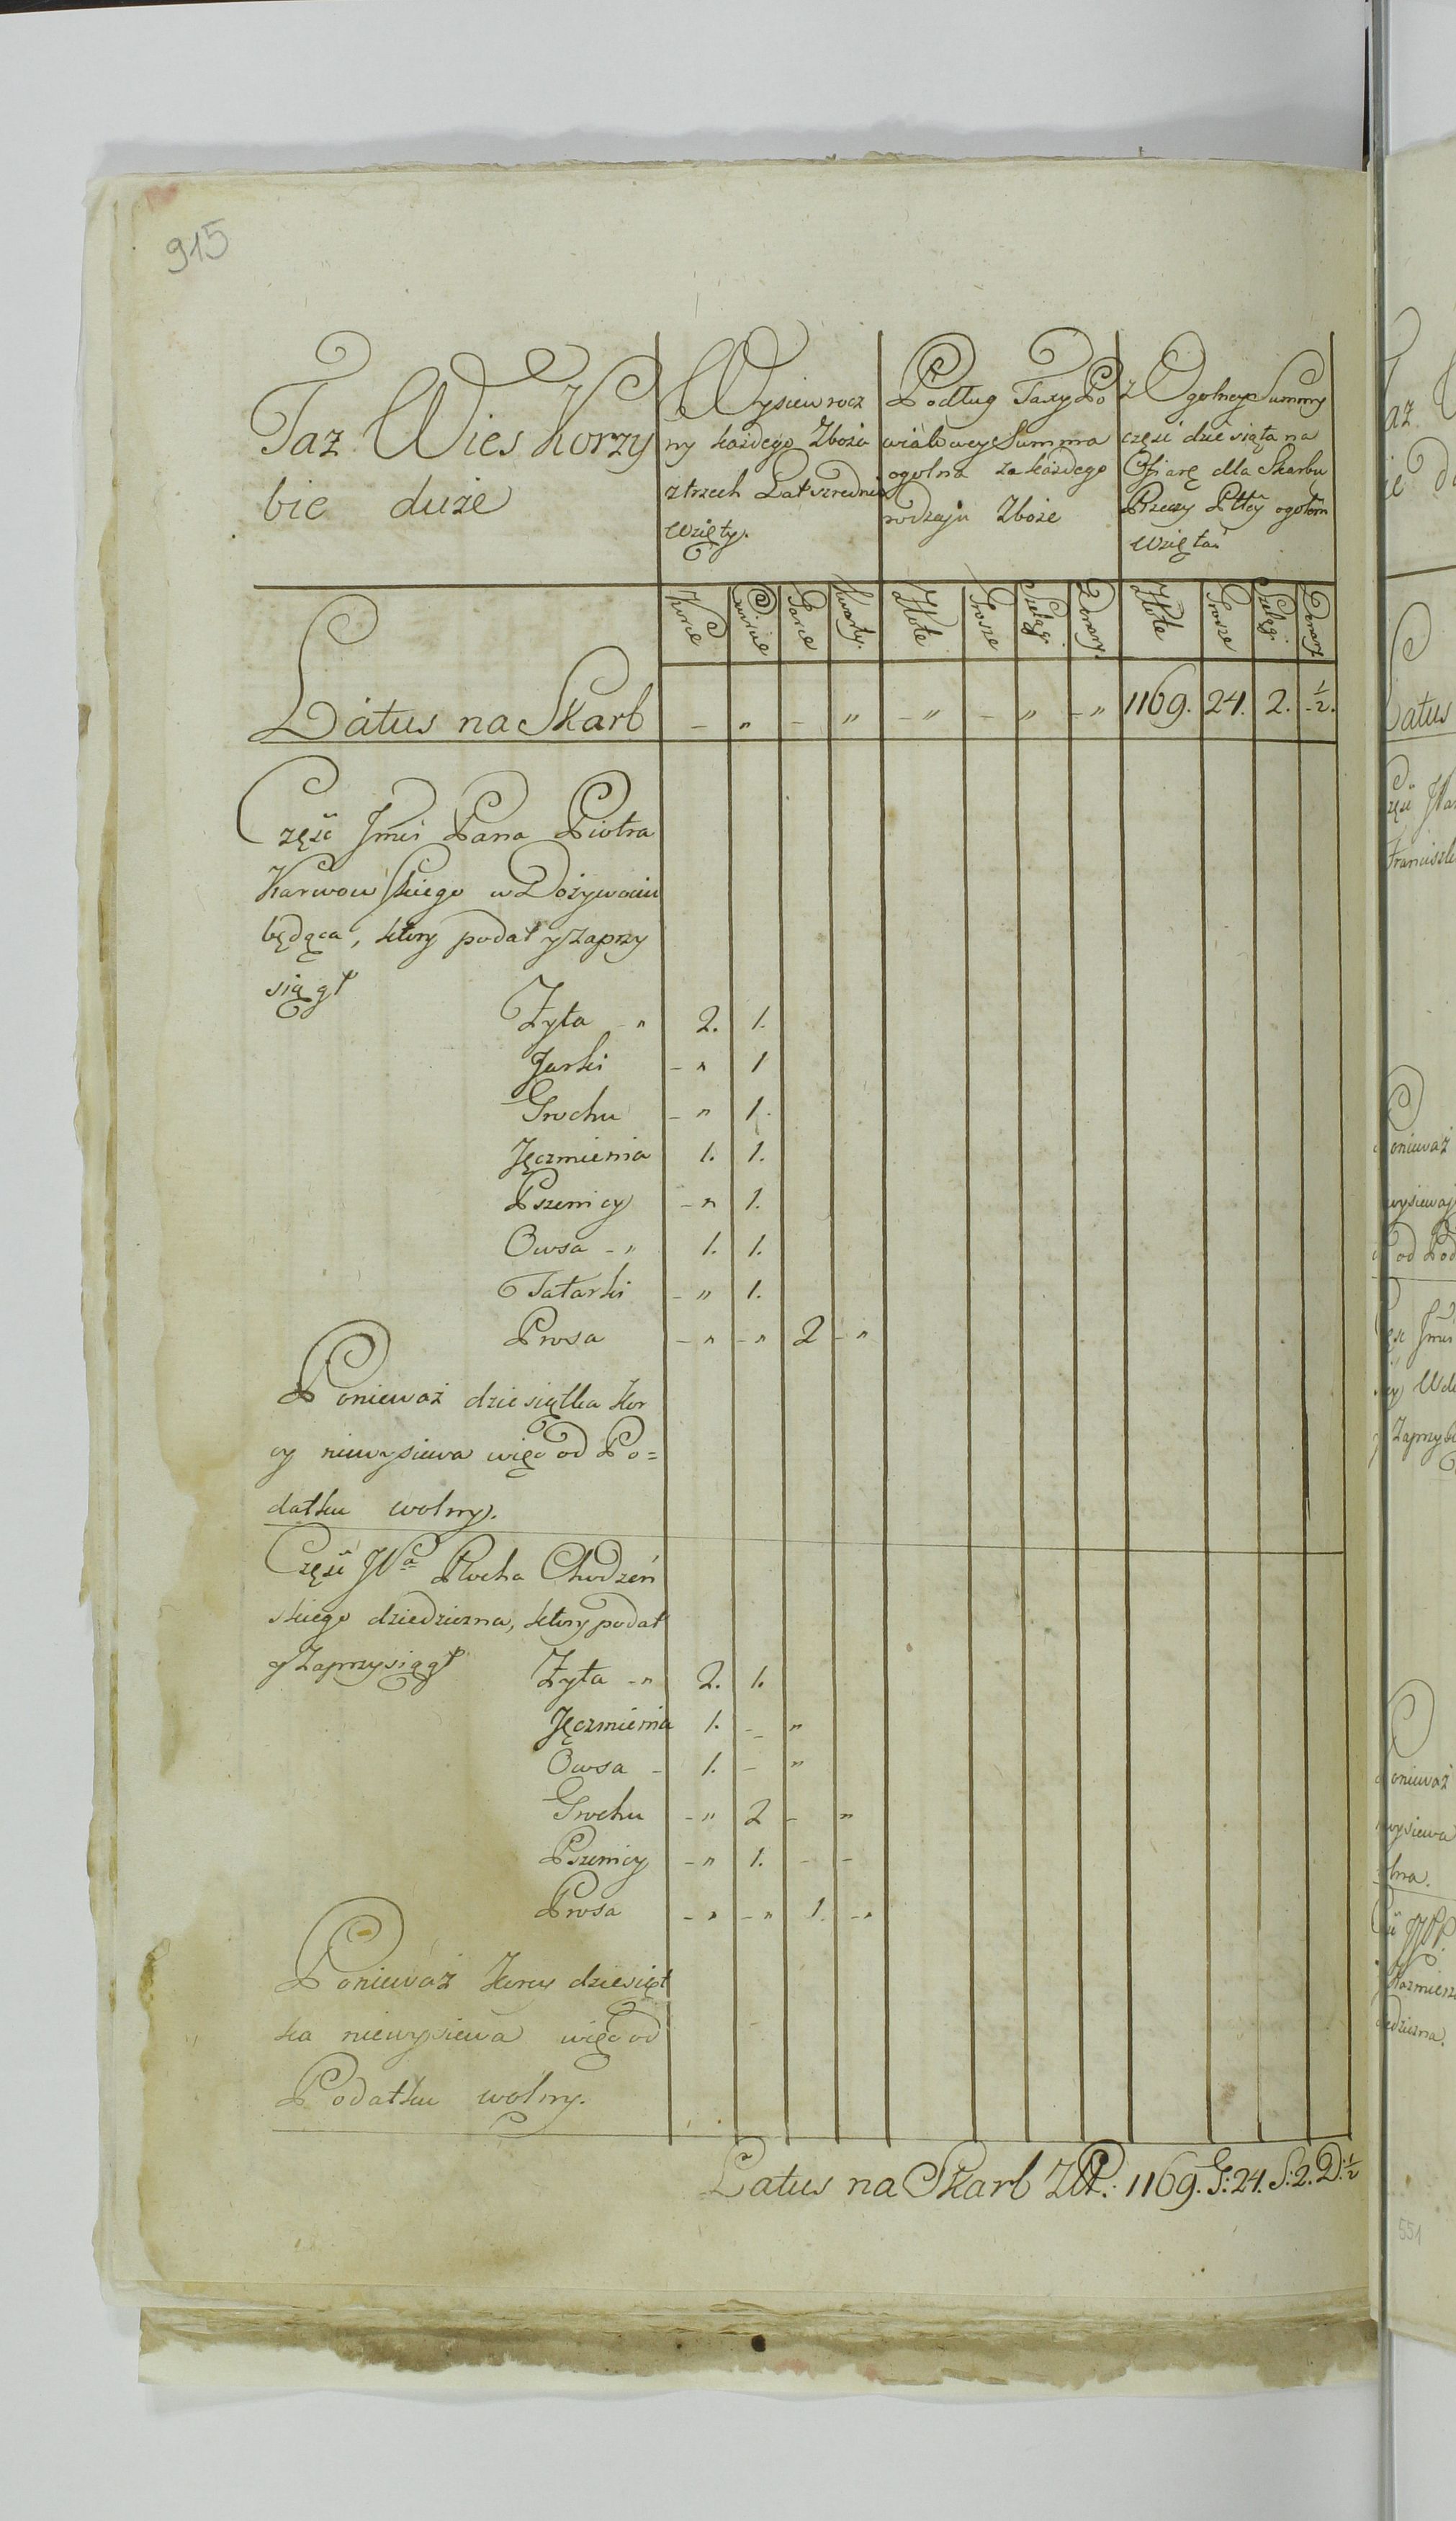 915
Taz Wies Korzy
bie duże
Wysiew rocz
ny każdego Zboża
z trzech Lat szrednio
wzięty.
Podług Taxy Po
wiatowey Summa
ogolna za każdego
rodzaju Zboże
z Ogolney Summy
częsć dziesiąta na
Ofiarę dla Skarbu
Rzeczy Pltey ogołem
wzięta
Korce Cwircie Garce Kwarty. Złote Grosze Szelągi Denary. Złote Grosze Szelągi Denary
Latus na Skarb - „ - „ - „ - „ - „ 1169. 24. 2. 1/2.
Częsć Jmci Pana Piotra
Karwowskiego w Dożywociu
będąca, ktory podał y zaprzy
siągł
Żyta - „ 2. 1.
Jarki - „ 1
Grochu - „ 1.
Jęczmienia 1. 1.
Pszenicy - „ 1.
Owsa - „ 1. 1.
Tatarki - „ 1.
Prosa - „ - „ 2 - „
Ponieważ dziesiątka Kor
cy niewysiewa więc od Po=
datku wolny.
Częsć JPa Rocha Chodzeń
skiego dziedziczna, ktory podał
y Zaprzysiągł Żyta - „ 2. 1.
Jęczmienia 1. - „
Owsa - 1. - „
Grochu - „ 2 - „
Pszenicy - „ 1. - -
Prosa - „ - „ 1. - „
Ponieważ Korcy dziesiąt
ka niewysiewa więc od
Podatku wolny.
Latus na Skarb ZłP: 1169. G: 24. S: 2. D: 1/2
Latus
Franciszk
onieważ
wysiewa
onieważ
wysiewa
551